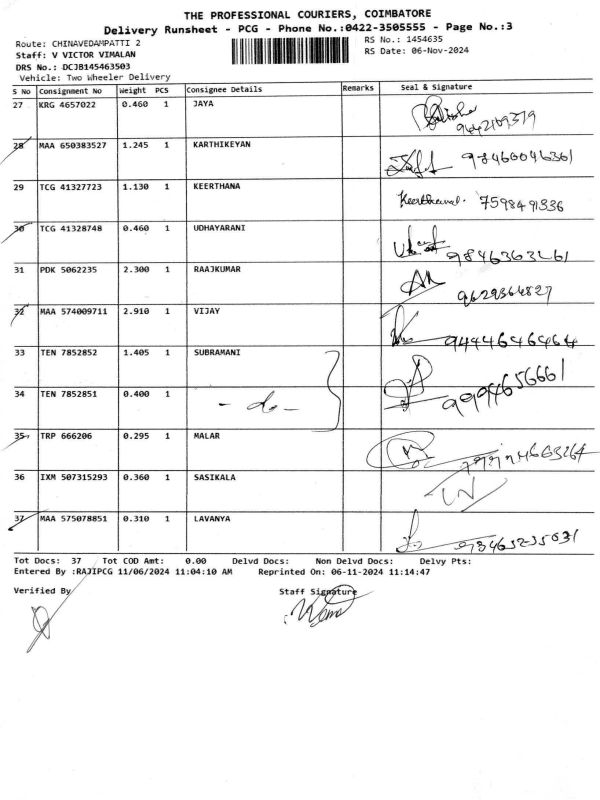 THE PROFESSIONAL COURIERS, COIMBATORE
Delivery Runsheet - PCG - Phone No.:0422-3505555 - Page No.:3
Route: CHINAVEDAMPATTI 2
RS No.: 1454635
Staff: V VICTOR VIMALAN
RS Date: 06-Nov-2024
DRS No.: DCJB145463503
Vehicle: Two Wheeler Delivery
S No Consignment No Weight PCS Consignee Details Remarks Seal & Signature
27 KRG 4657022 0.460 1 JAYA
28 MAA 650383527 1.245 1 KARTHIKEYAN
29 TCG 41327723 1.130 1 KEERTHANA Keerthana. 7598491336
30 TCG 41328748 0.460 1 UDHAYARANI
31 PDK 5062235 2.300 1 RAAJKUMAR 9629364827
32 MAA 574009711 2.910 1 VIJAY 9444646464
33 TEN 7852852 1.405 1 SUBRAMANI
34 TEN 7852851 0.400 1 - do - 9994656661
35 TRP 666206 0.295 1 MALAR
36 IXM 507315293 0.360 1 SASIKALA
37 MAA 575078851 0.310 1 LAVANYA
Tot Docs: 37 Tot COD Amt: 0.00 Delvd Docs: Non Delvd Docs: Delvy Pts:
Entered By :RAJIPCG 11/06/2024 11:04:10 AM Reprinted On: 06-11-2024 11:14:47
Verified By Staff Signature